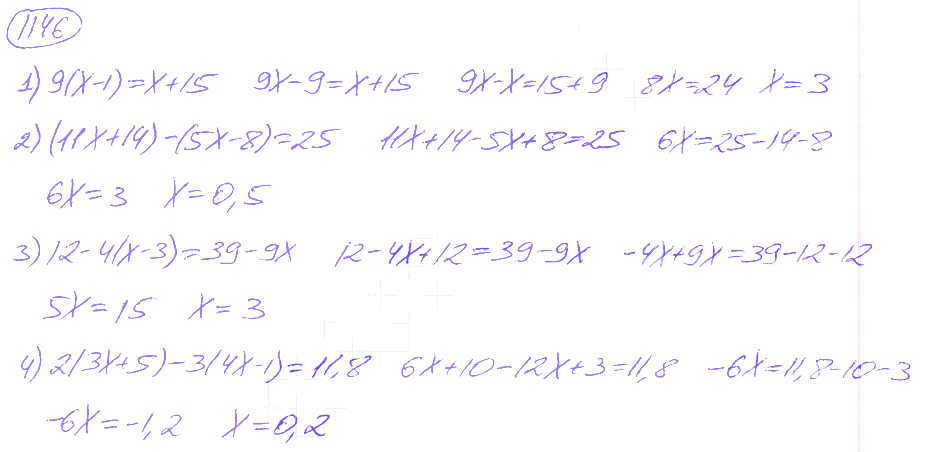 1146
1) 9(x-1)=x+15 9x-9=x+15 9x-x=15+9 8x=24 x=3
2) (11x+14)-(5x-8)=25 11x+14-5x+8=25 6x=25-14-8
6x=3 x=0,5
3) 12-4(x-3)=39-9x 12-4x+12=39-9x -4x+9x=39-12-12
5x=15 x=3
4) 2(3x+5)-3(4x-1)=11,8 6x+10-12x+3=11,8 -6x=11,8-10-3
-6x=-1,2 x=0,2